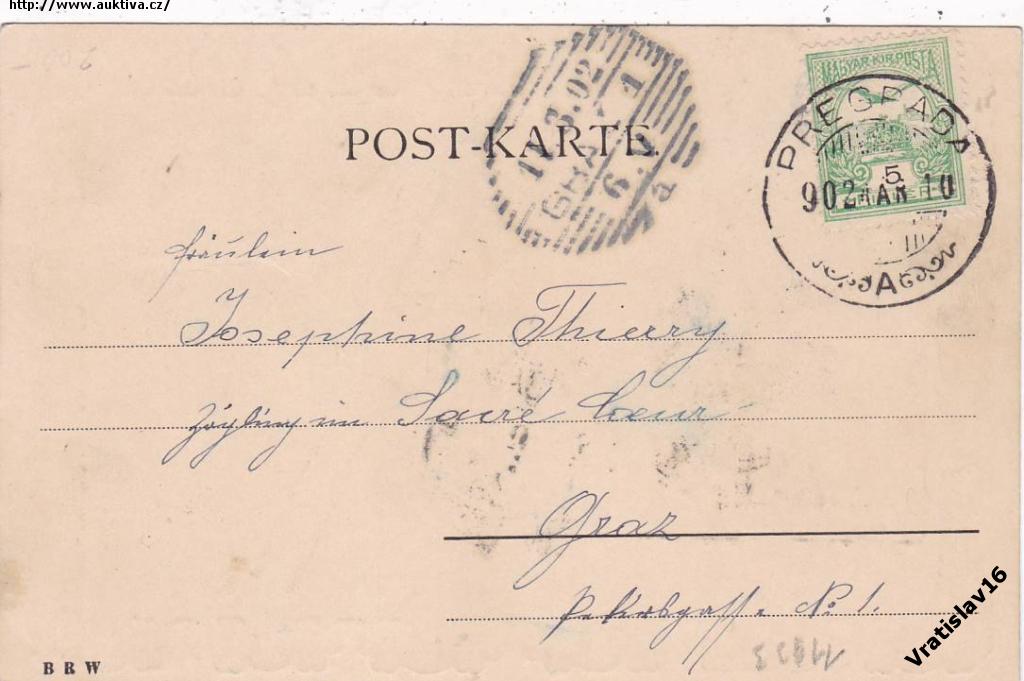 http://www.auktiva.cz/
POST-KARTE.
MAGYAR·KIR·POSTA
PREGRADA
5
902 MAR 10
A
11.3.02
GRAZ 1
6
Fräulein
Josephine Thierry
Zögling im Sacré Coeur
Graz
Petersgasse No 1.
BRW
Vratislav16